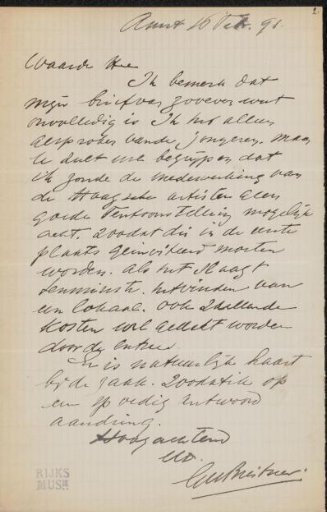 2
Amst 16 Feb. 91.
Waarde Hee
Ik bemerk dat
mijn brief van zoveven wat
onvolledig is Ik heb alleen
gesproken van de jongeren. maar
U zult wel begrijpen dat
ik zonder de medewerking van
de Haagsche artisten geen
goede tentoonstelling mogelijk
acht. zoodat die in de eerste
plaats geinviteerd moeten
worden. als het Haagt
het vinden van
een lokaal. ook zullen de
kosten wel gedekt worden
door de entree.
Er is natuurlijk haast
bij de zaak. zoodat ik op
een spoedig antwoord
aandring.
Hoogachtend
UD.
GHBreitner
RIJKS
MUSM